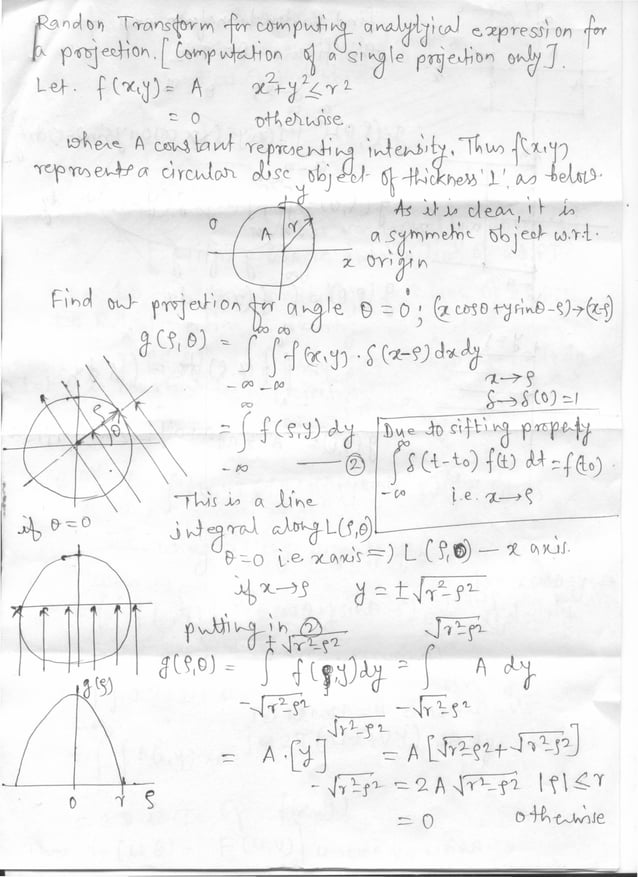 Randon Transform for computing analytyical expression for
a projection. [Computation of a single projection only].
Let. f(x,y) = A x²+y² ≤ r²
= 0 otherwise.
where A constant representing intensity. Thus f(x,y)
represents a circular disc object of thickness '1'. as below.
y
0
A
r
x
As it is clear, it is
a symmetric object w.r.t.
origin
Find out projection for angle θ = 0°; (x cosθ + y sinθ - ρ) → (x-ρ)
g(ρ,θ) = ∫_{-∞}^{∞} ∫_{-∞}^{∞} f(x,y) · δ(x-ρ) dx dy
x → ρ
δ → δ(0) = 1
ρ
θ
= ∫_{-∞}^{∞} f(ρ,y) dy
— ②
Due to sifting property
∫_{-∞}^{∞} δ(t-t₀) f(t) dt = f(t₀)
i.e. x → ρ
This is a line
integral along L(ρ,θ)
if θ = 0
θ = 0 i.e x axis ⇒ L(ρ,0) — x axis.
if x → ρ y = ± √(r²-ρ²)
putting in ②
g(ρ,θ) = ∫_{-√(r²-ρ²)}^{+√(r²-ρ²)} f(ρ,y) dy = ∫_{-√(r²-ρ²)}^{√(r²-ρ²)} A dy
g(ρ)
0 r ρ
= A·[y]_{-√(r²-ρ²)}^{√(r²-ρ²)} = A[√(r²-ρ²) + √(r²-ρ²)]
= 2A √(r²-ρ²) |ρ| ≤ r
= 0 otherwise